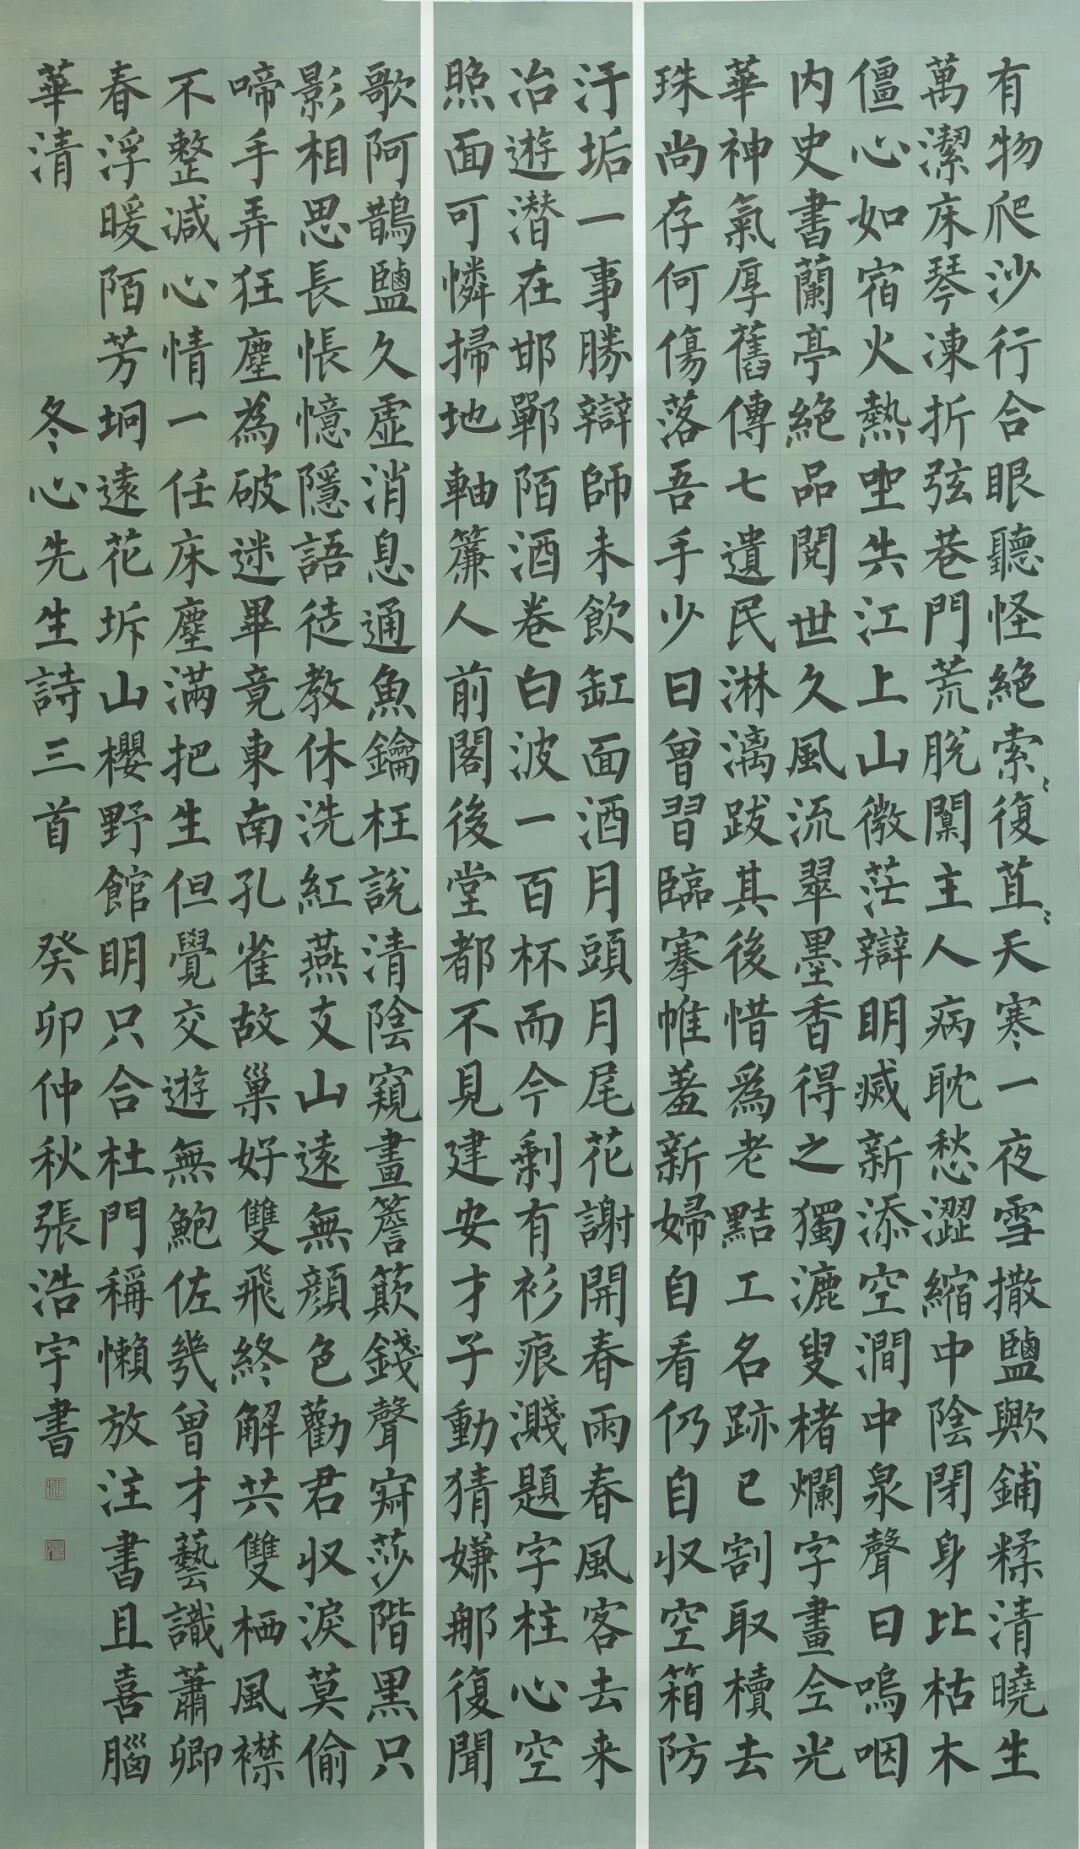 有物爬沙行合眼聽怪絕索〻復苴〻天寒一夜雪撒鹽歟鋪糅清曉生
萬潔床琴凍折弦巷門荒脫闑主人病耽愁澀縮中陰閉身比枯木
僵心如宿火熱坐共江上山微茫辯明滅新添空澗中泉聲曰嗚咽
内史書蘭亭絕品閱世久風流翠墨香得之獨漉叟楮爛字畫仝光
華神氣厚舊傳七遺民淋漓跋其後惜爲老黠工名跡已割取櫝去
珠尚存何傷落吾手少日曾習臨搴帷羞新婦自看仍自収空箱防
汙垢一事勝辯師未飲缸面酒月頭月尾花謝開春雨春風客去来
冶遊潛在邯鄲陌酒卷白波一百杯而今剩有衫痕濺題字柱心空
照面可憐掃地軸簾人前閣後堂都不見建安才子動猜嫌那復聞
歌阿鵲鹽久虛消息通魚鑰枉說清陰窺畫簷簸錢聲寂莎階黑只
影相思長悵憶隱語徒教休洗紅燕支山遠無顏色勸君収淚莫偷
啼手弄狂塵為破迷畢竟東南孔雀故巢好雙飛終解共雙栖風襟
不整減心情一任床塵滿把生但覺交遊無鮑佐幾曾才藝識蕭卿
春浮暖陌芳坰遠花坼山櫻野館明只合杜門稱懶放注書且喜腦
華清 冬心先生詩三首 癸卯仲秋張浩宇書